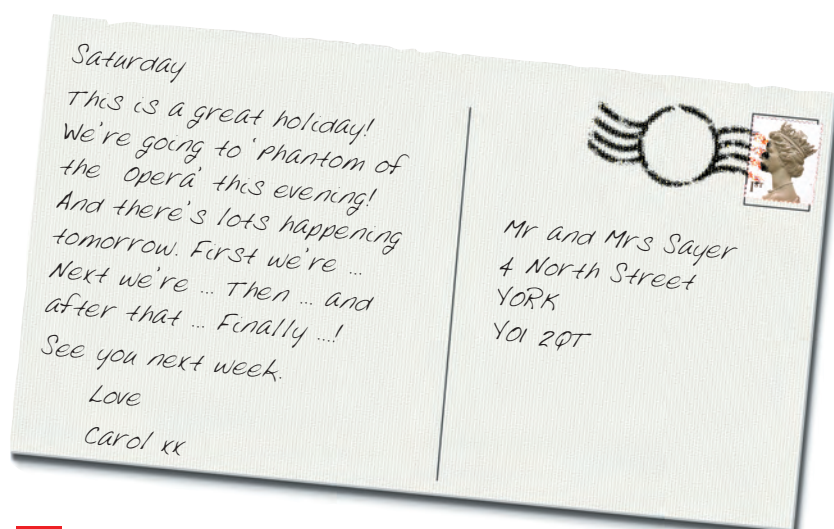 Saturday
This is a great holiday!
We're going to 'Phantom of
the Opera' this evening!
And there's lots happening
tomorrow. First we're ...
Next we're ... Then ... and
after that ... Finally ...!
See you next week.
Love
Carol xx
Mr and Mrs Sayer
4 North Street
YORK
YO1 2QT
1ST